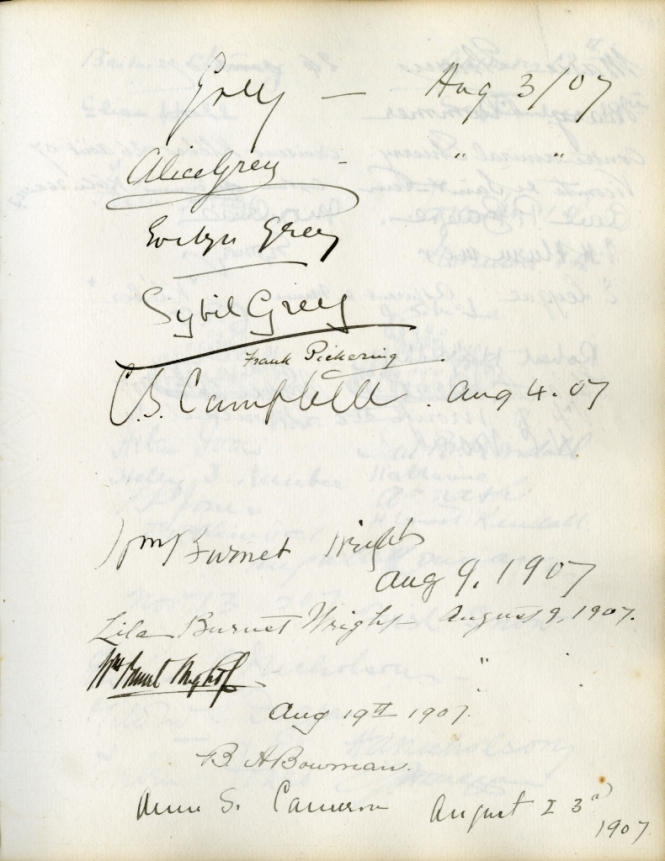 Grey — Aug 3/07
Alice Grey - " "
Evelyn Grey
Sybil Grey
Frank Pickering
C. S. Campbell . Aug 4. 07
Burnet Wright
Aug 9, 1907
Lila Burnet Wright August 9, 1907.
Wm Burnet Wright Jr "
Aug 19th 1907.
B A Bowman.
Anne S. Cameron August 23rd
1907